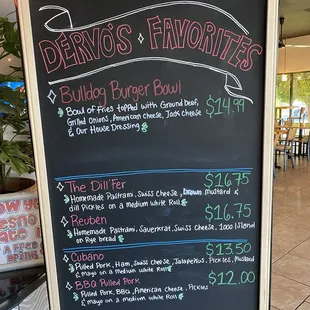 DERVO'S FAVORITES
Bulldog Burger Bowl
Bowl of Fries topped with Ground beef,
Grilled Onions, American Cheese, Jack Cheese
& Our House Dressing
$14.99
The Dill'Fer $16.75
Homemade Pastrami, Swiss Cheese, brown mustard &
dill Pickles on a medium white Roll
Reuben $16.75
Homemade Pastrami, Sauerkrat, Swiss Cheese, 1000 Island
on Rye bread
Cubano $13.50
Pulled Pork, Ham, Swiss Cheese, Jalapeños, Pickles, Mustard
& mayo on a medium white Roll
BBQ Pulled Pork $12.00
Pulled Pork, BBQ, American Cheese, Pickles
& mayo on a medium white Roll